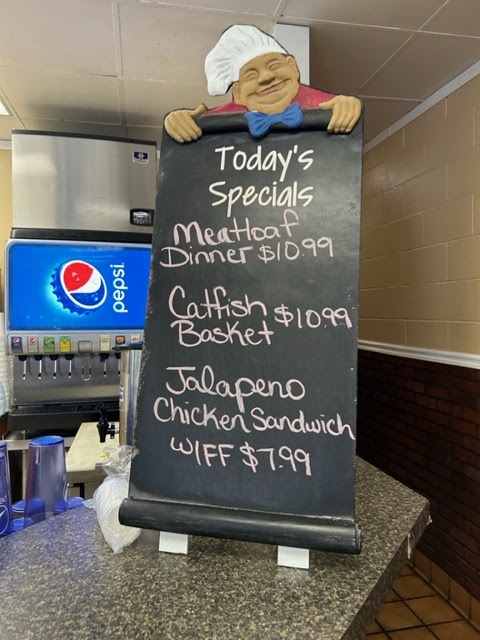 Today's
Specials
Meatloaf
Dinner $10.99
Catfish
Basket $10.99
Jalapeno
Chicken Sandwich
W/FF $7.99
pepsi